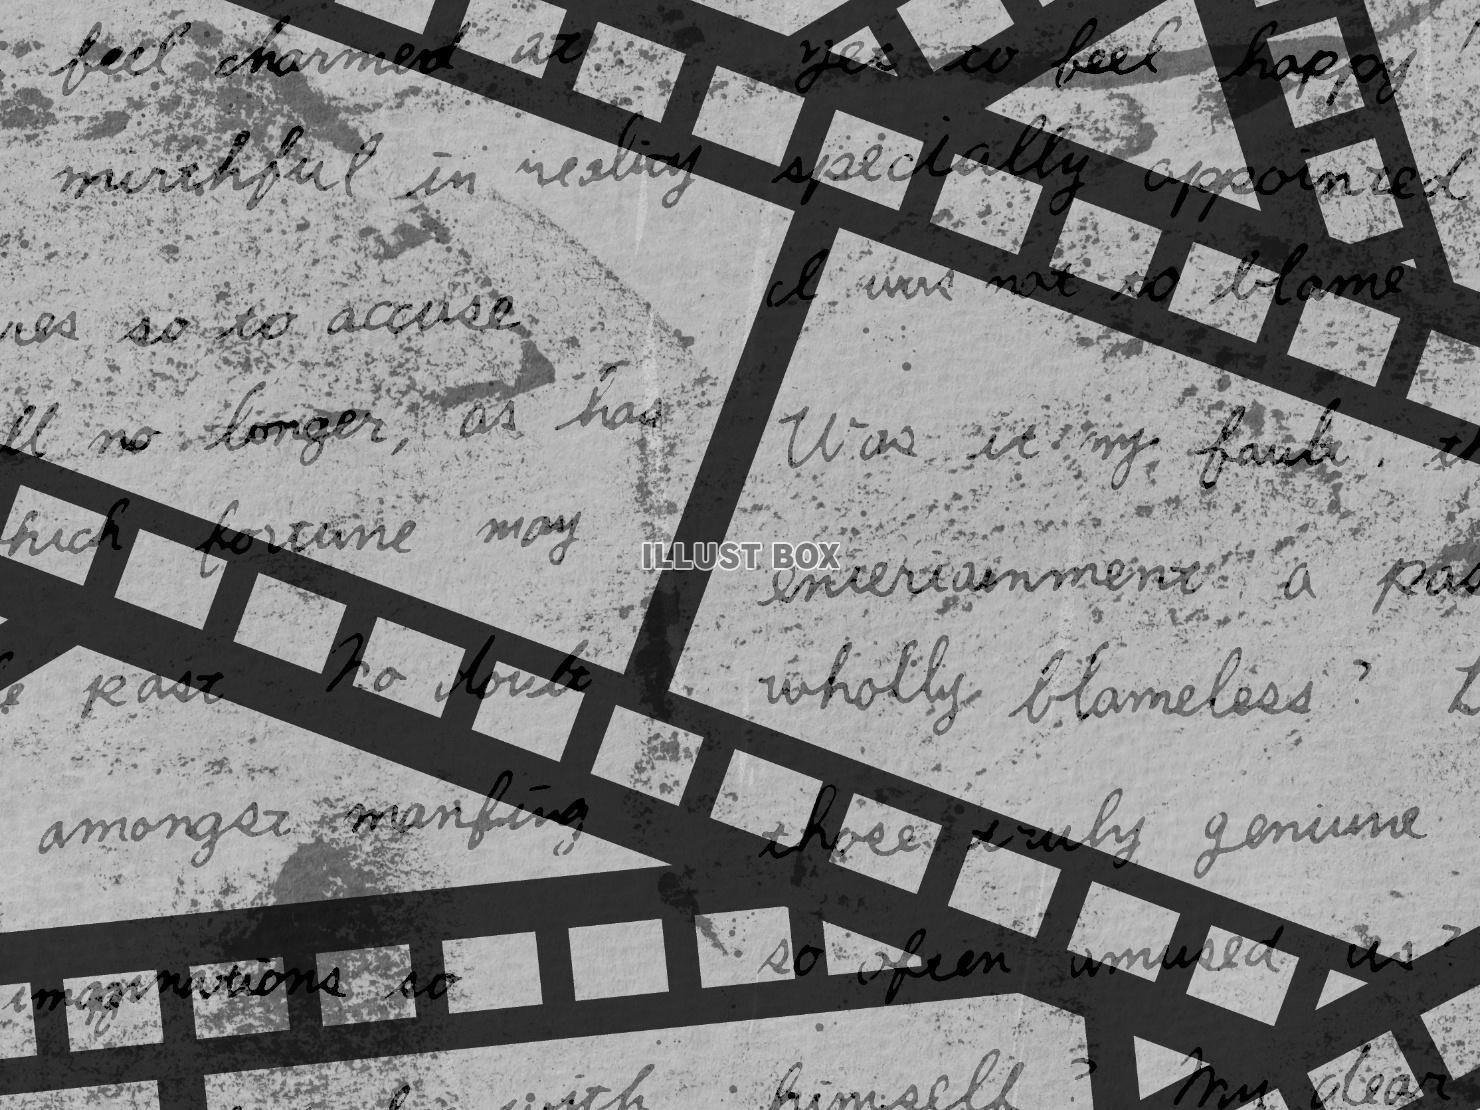 feel charmed at
yes to feel happy
mirthful in reality specially appointed
I was not to blame
so to accuse
no longer, as has
Was it my fault.
fortune may
ILLUST BOX
entertainment a
past No doubt
wholly blameless?
amongst
those truly genuine
so often amused us?
so
with himself? My dear